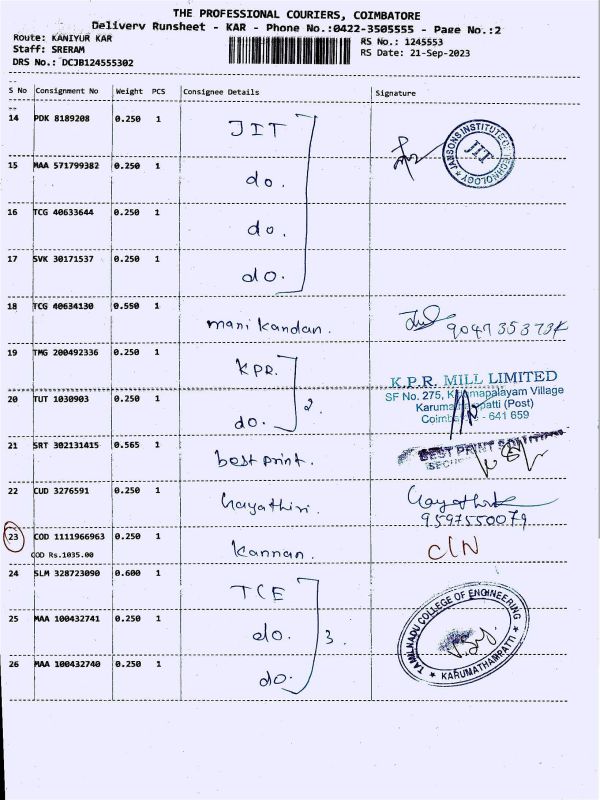 THE PROFESSIONAL COURIERS, COIMBATORE
Delivery Runsheet - KAR - Phone No.:0422-3505555 - Page No.:2
Route: KANIYUR KAR
Staff: SRERAM
DRS No.: DCJB124555302
RS No.: 1245553
RS Date: 21-Sep-2023
S No Consignment No Weight PCS Consignee Details Signature
14 PDK 8189208 0.250 1 JIT
JANSONS INSTITUTE OF TECHNOLOGY
JIT
15 MAA 571799382 0.250 1 do.
16 TCG 40633644 0.250 1 do.
17 SVK 30171537 0.250 1 do.
18 TCG 40634130 0.550 1 manikandan.
19 TMG 200492336 0.250 1 KPR.
2.
K.P.R. MILL LIMITED
SF No. 275, Kolumapalayam Village
Karumathampatti (Post)
Coimbatore - 641 659
20 TUT 1030903 0.250 1 do.
21 SRT 302131415 0.565 1 best print.
BEST PRINT
22 CUD 3276591 0.250 1 Gayathiri.
9597550079
23 COD 1111966963 0.250 1 Kannan. C/N
COD Rs.1035.00
24 SLM 328723090 0.600 1 TCE
25 MAA 100432741 0.250 1 do. 3.
TAMILNADU COLLEGE OF ENGINEERING
KARUMATHAMPATTI
26 MAA 100432740 0.250 1 do.